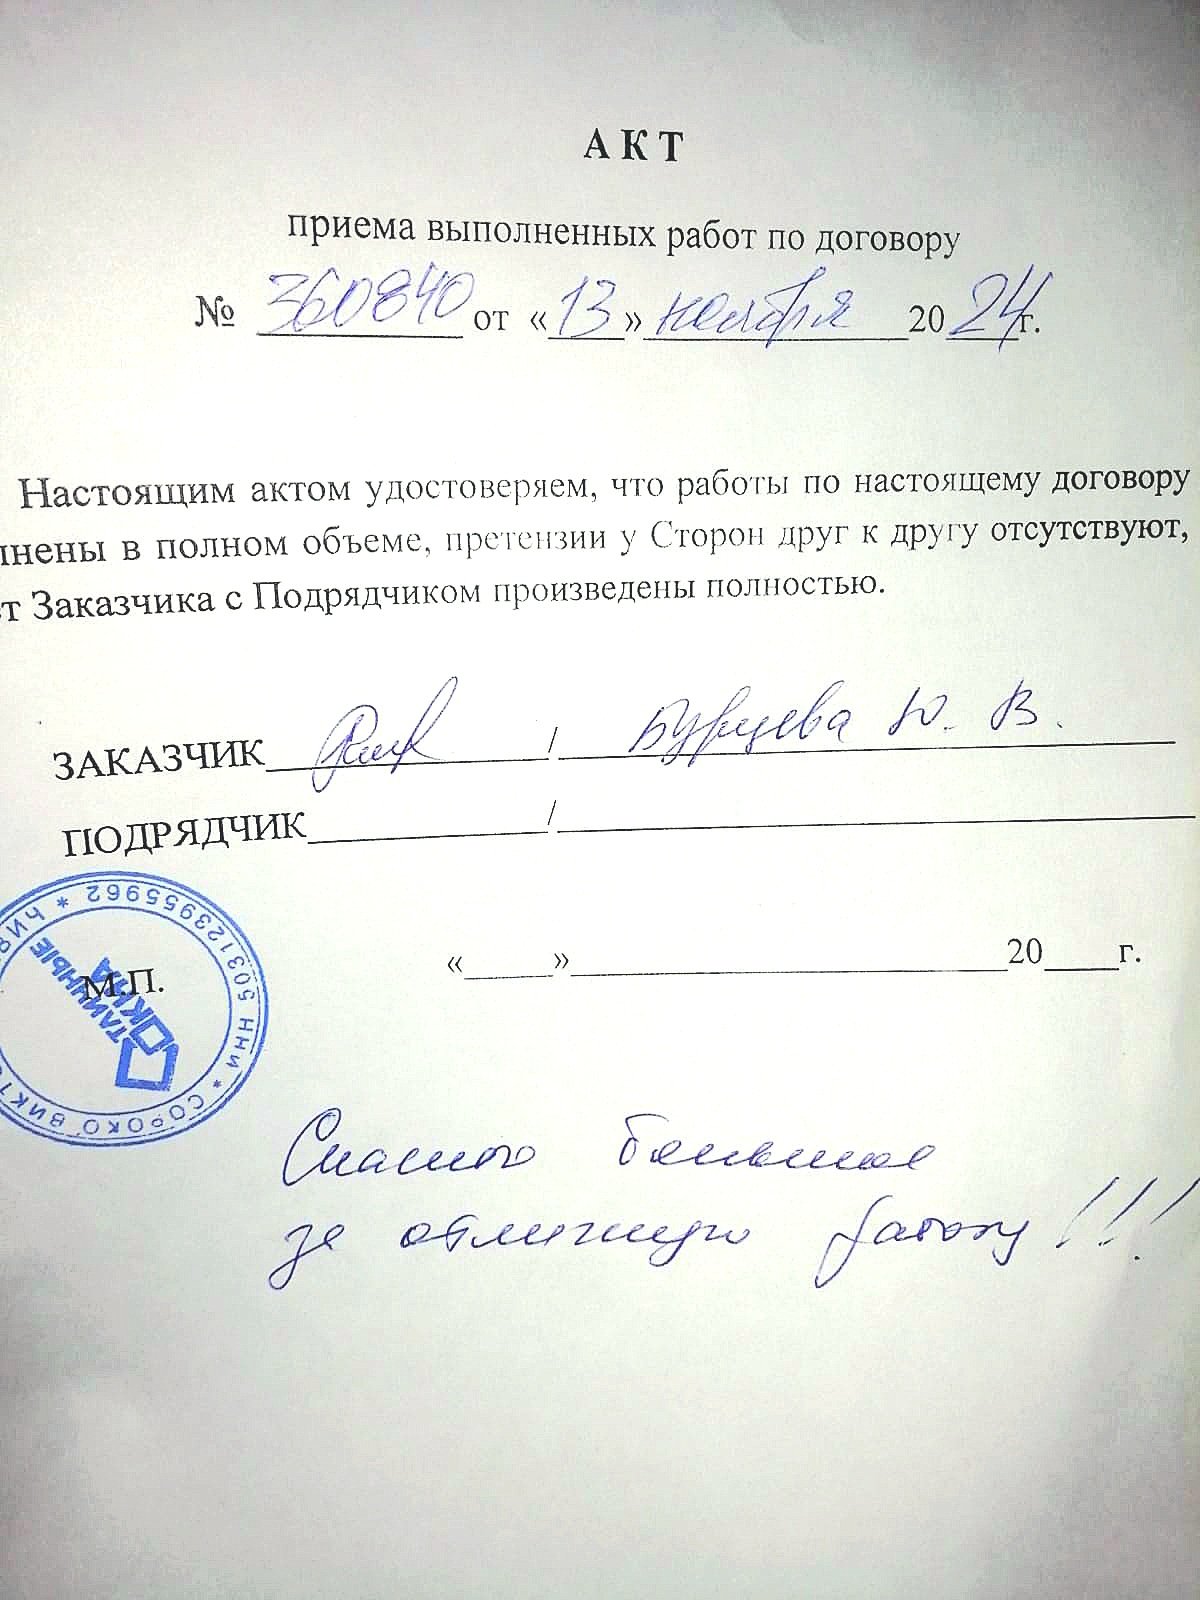 А К Т
приема выполненных работ по договору
№ 360840 от «13» ноября 2024г.
Настоящим актом удостоверяем, что работы по настоящему договору
лнены в полном объеме, претензии у Сторон друг к другу отсутствуют,
ет Заказчика с Подрядчиком произведены полностью.
ЗАКАЗЧИК / Бурцева Ю. В.
ПОДРЯДЧИК /
М.П. « » 20 г.
* СОРОКО ВИКТО * ИНН 503123955962 *
ОТЛИЧНЫЕ
ОКНА
Спасибо большое
за отличную работу!!!